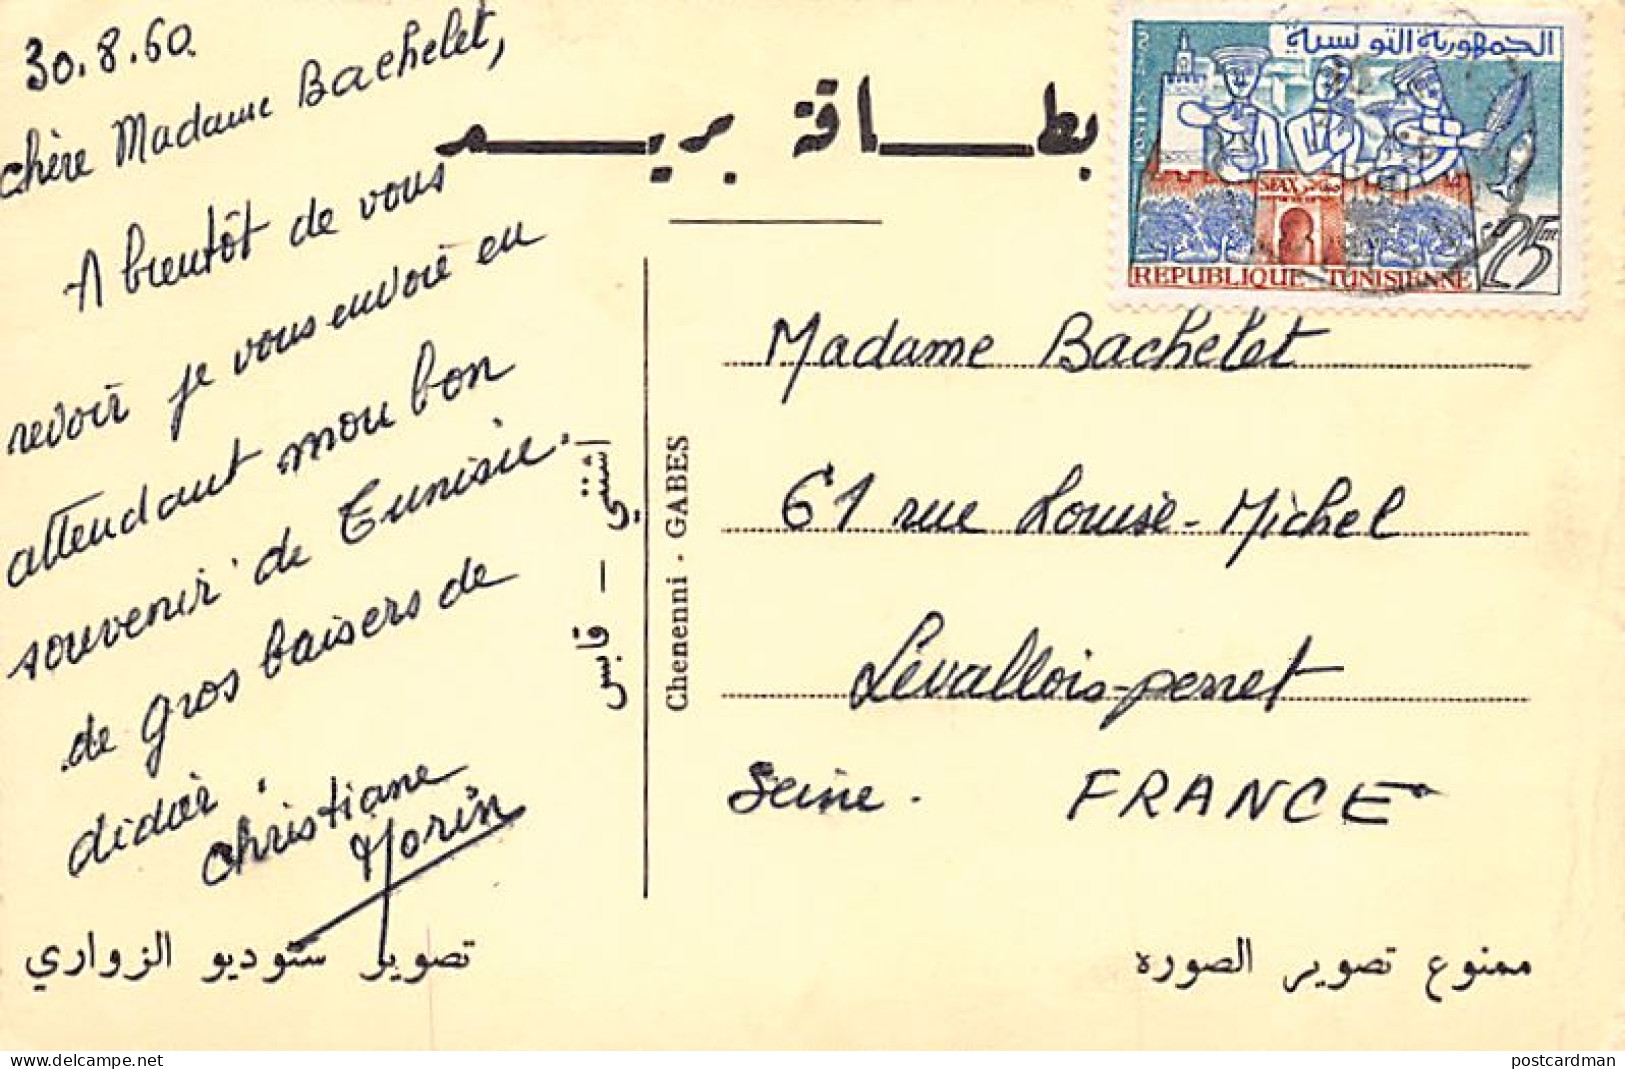 30.8.60.
chère Madame Bachelet,
A bientôt de vous
revoir je vous envoie en
attendant mon bon
souvenir de Tunisie.
de gros baisers de
didoir.
christiane
Morin
تصوير ستوديو الزواري
بطاقة بريد
اشنني - قابس
Chenenni - GABES
الجمهورية التونسية
SFAX صفاقس
25m
REPUBLIQUE TUNISIENNE
Madame Bachelet
61 rue Louise-Michel
Levallois-perret
Seine. FRANCE
ممنوع تصوير الصوره
postcardman